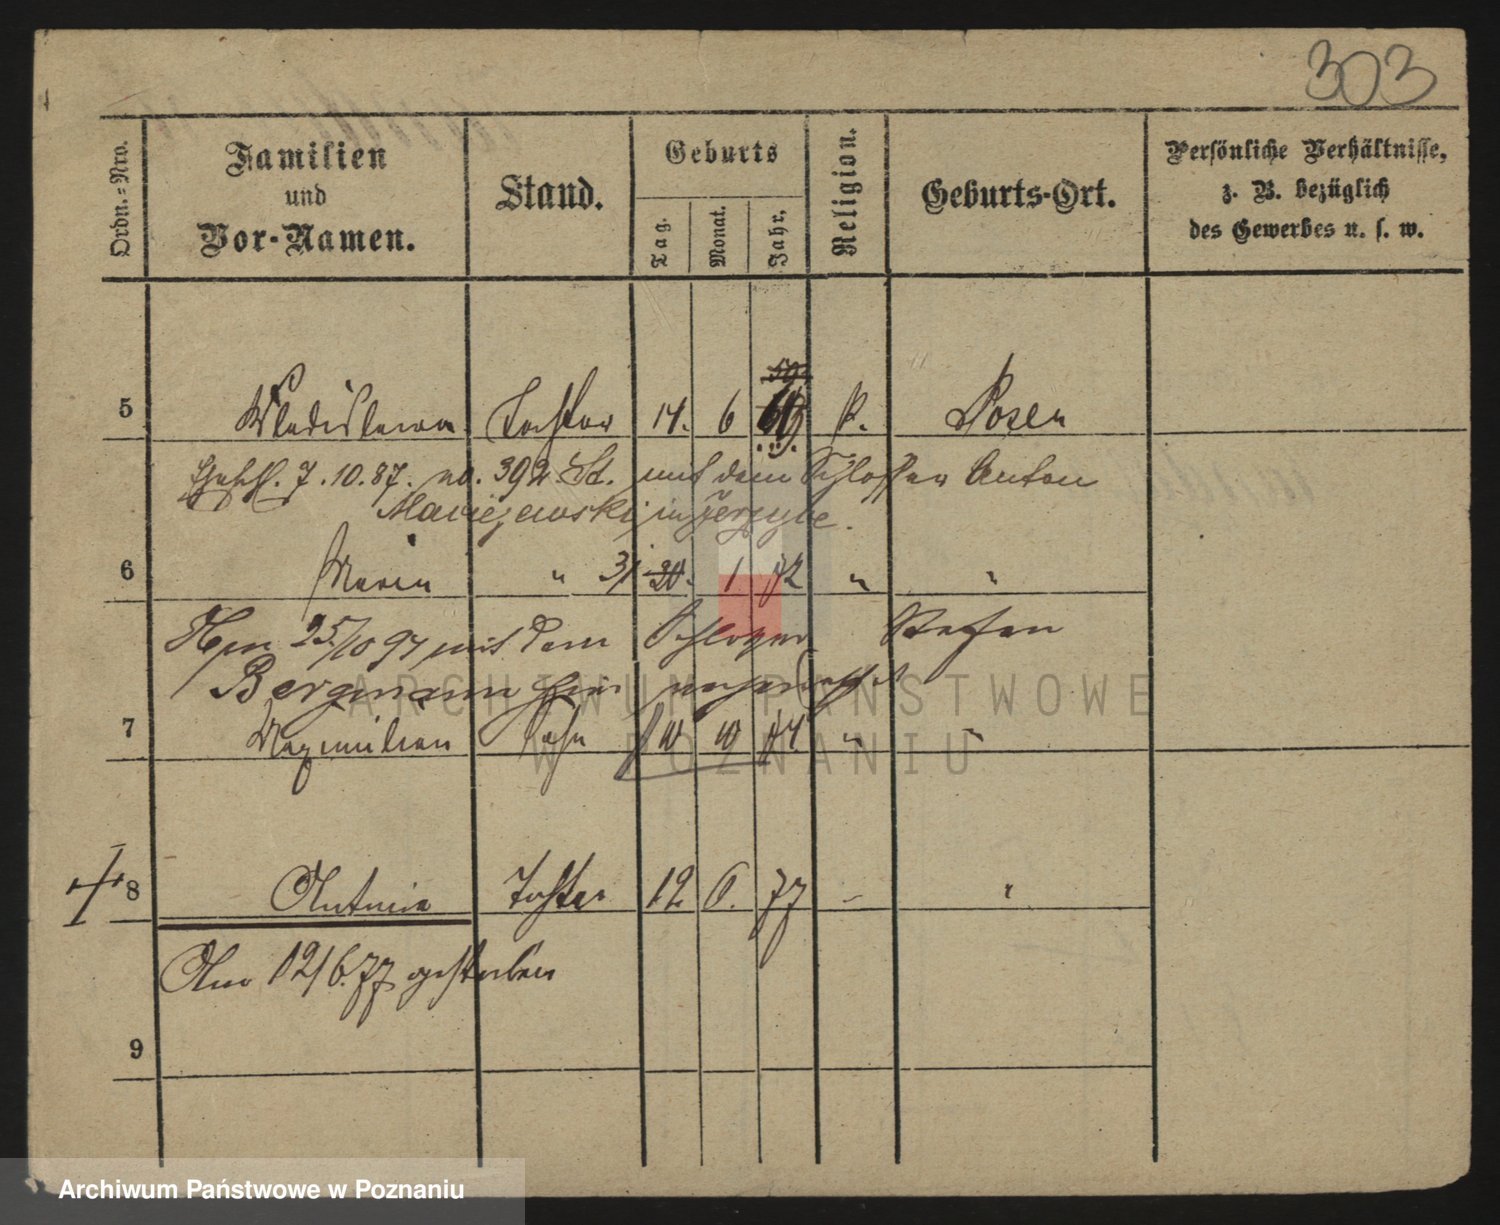 303
Ordn.-Nro. Familien und Vor-Namen. Stand. Geburts Tag. Monat. Jahr. Religion. Geburts-Ort. Persönliche Verhältnisse, z. B. bezüglich des Gewerbes u. s. w.
5 Wladislawa Tochter 14. 6 k. Posen
7.10.87. no. 392 St. mit dem Schlosser Anton
Maciejewski in Jerzyce.
6 Maria " 31 20. 1 72 " "
25/10 97 mit dem Schlosser Stefan
Bergmann hier
7 Maximilian Sohn 10 10 74 " "
8 Antonie Tochter 12 6. 77 - "
Am 12/6.77 gestorben
9
ARCHIWUM PAŃSTWOWE
W POZNANIU
Archiwum Państwowe w Poznaniu